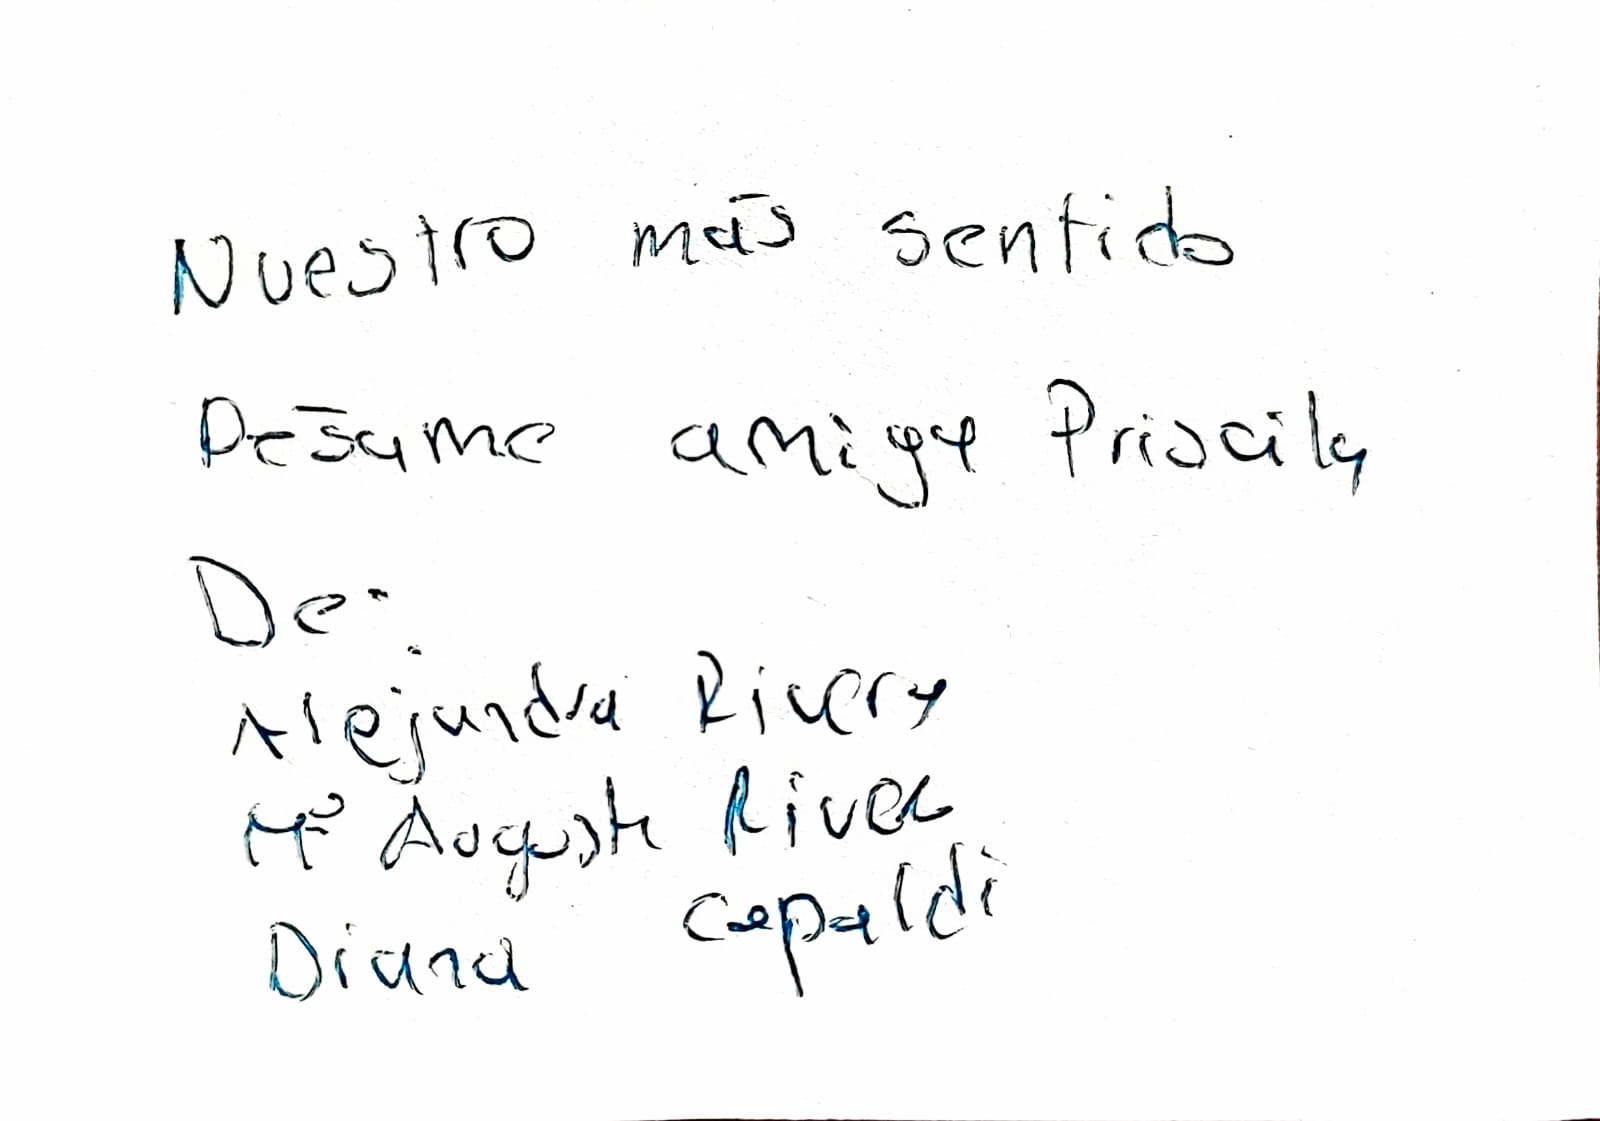 Nuestro más sentido
Pésame amiga Priscila
De:
Alejandra Rivera
Mª Augusta Rivera
Diana Capaldi